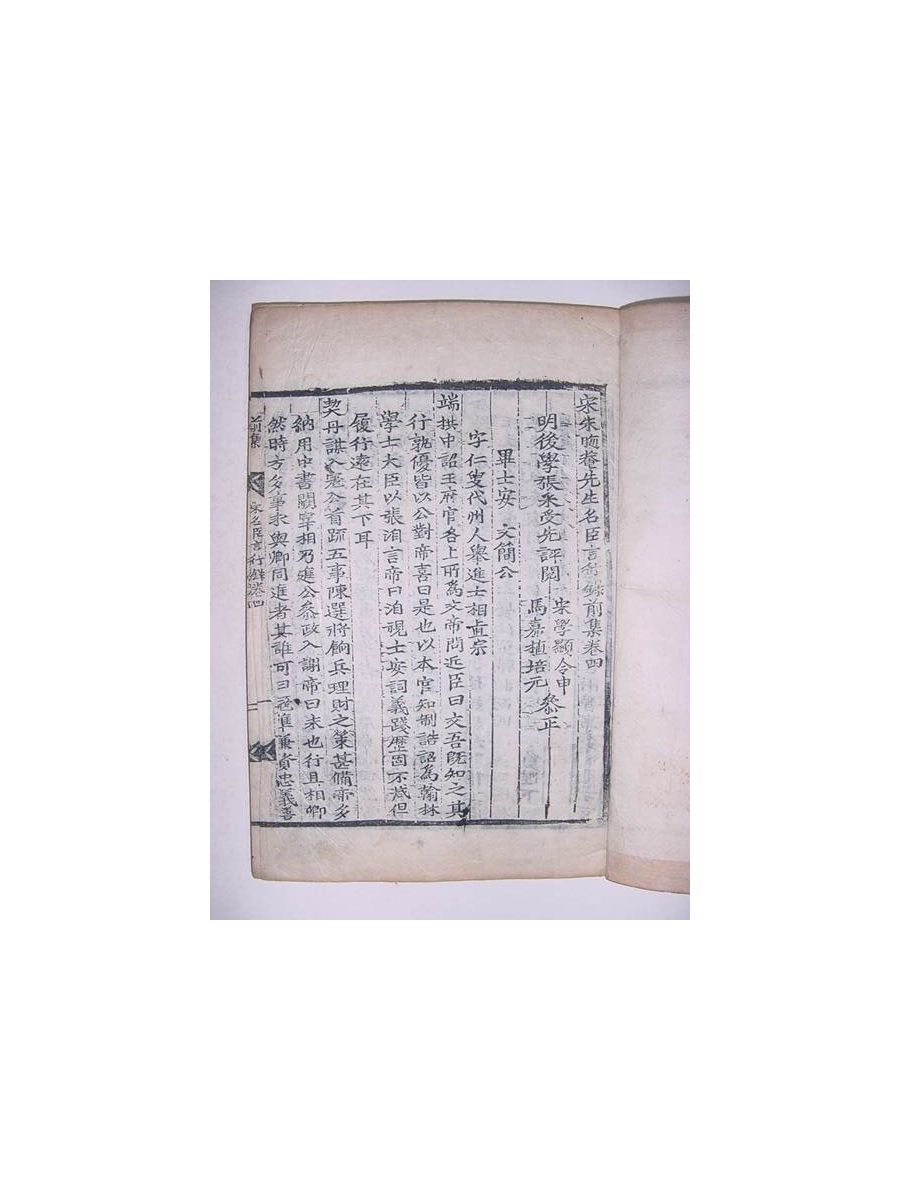 宋朱晦菴先生名臣言行錄前集卷四
明後學張采受先評閱
宋學顯令申
馬嘉植培元
叅正
畢士安 文簡公
字仁叟代州人舉進士相真宗
端拱中詔王府官各上所為文帝問近臣曰文吾既知之其
行孰優皆以公對帝喜曰是也以本官知制誥詔為翰林
學士大臣以張洎言帝曰洎視士安詞義踐歷固不减但
履行遠在其下耳
契丹謀入寇公首疏五事陳選將餉兵理財之策甚備帝多
納用中書闕宰相乃進公叅政入謝帝曰未也行且相卿
然時方多事求與卿同進者其誰可曰寇準兼資忠義善
前集
宋名臣言行錄卷四
一